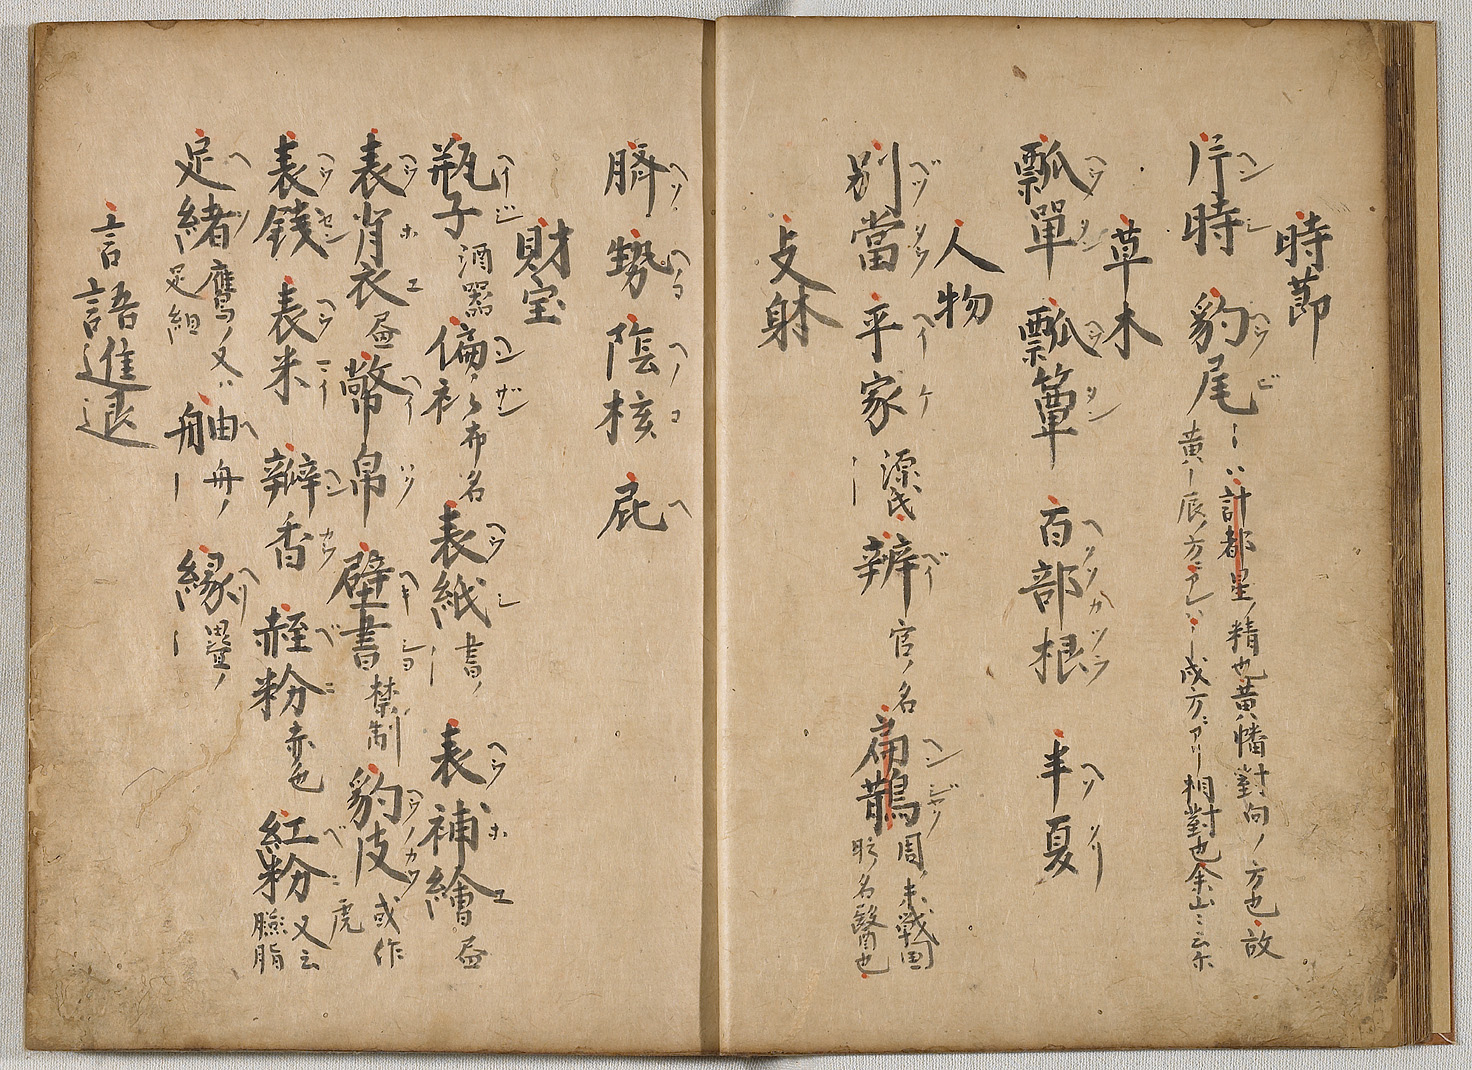 時節
片時 ヘンシ 豹尾 ヘウビ 計都星ノ精也黄幡對向ノ方也故
黄｜辰ノ方ニアレハ｜戌方ニアリ相對也
草木
瓢單 ヘウタン 瓢簞 ヘウタン 百部根 ヘクソカツラ 半夏 ヘソクリ
人物
別當 ベツタウ 平家 ヘイケ 源氏｜ 辨 ベイ 官ノ名 扁鵲 ヘンジヤク 周ノ末戦国時ノ名醫也
支躰
臍 ヘソ 勢 ヘノコ 陰核 ヘノコ 屁 ヘ
財宝
瓶子 ヘイジ 酒器 偏衫 ヘンサン 布名 表紙 ヘウシ 書ノ｜ 表補繪 ヘウホエ
表背衣 ヘウホエ 幣帛 ヘイハク 壁書 ヘキシヨ 禁制 豹皮 ヘウノカワ 或作虎
表錢 ヘウセン 表米 ヘウマイ 瓣香 ヘンカウ 赬粉 ベニ 赤色 紅粉 ベニ 又云臙脂
足緒 ヘヲ 鷹ノ又ハ足組 舳 ヘ 舟ノ｜ 縁 ヘリ 疊ノ｜
言語進退